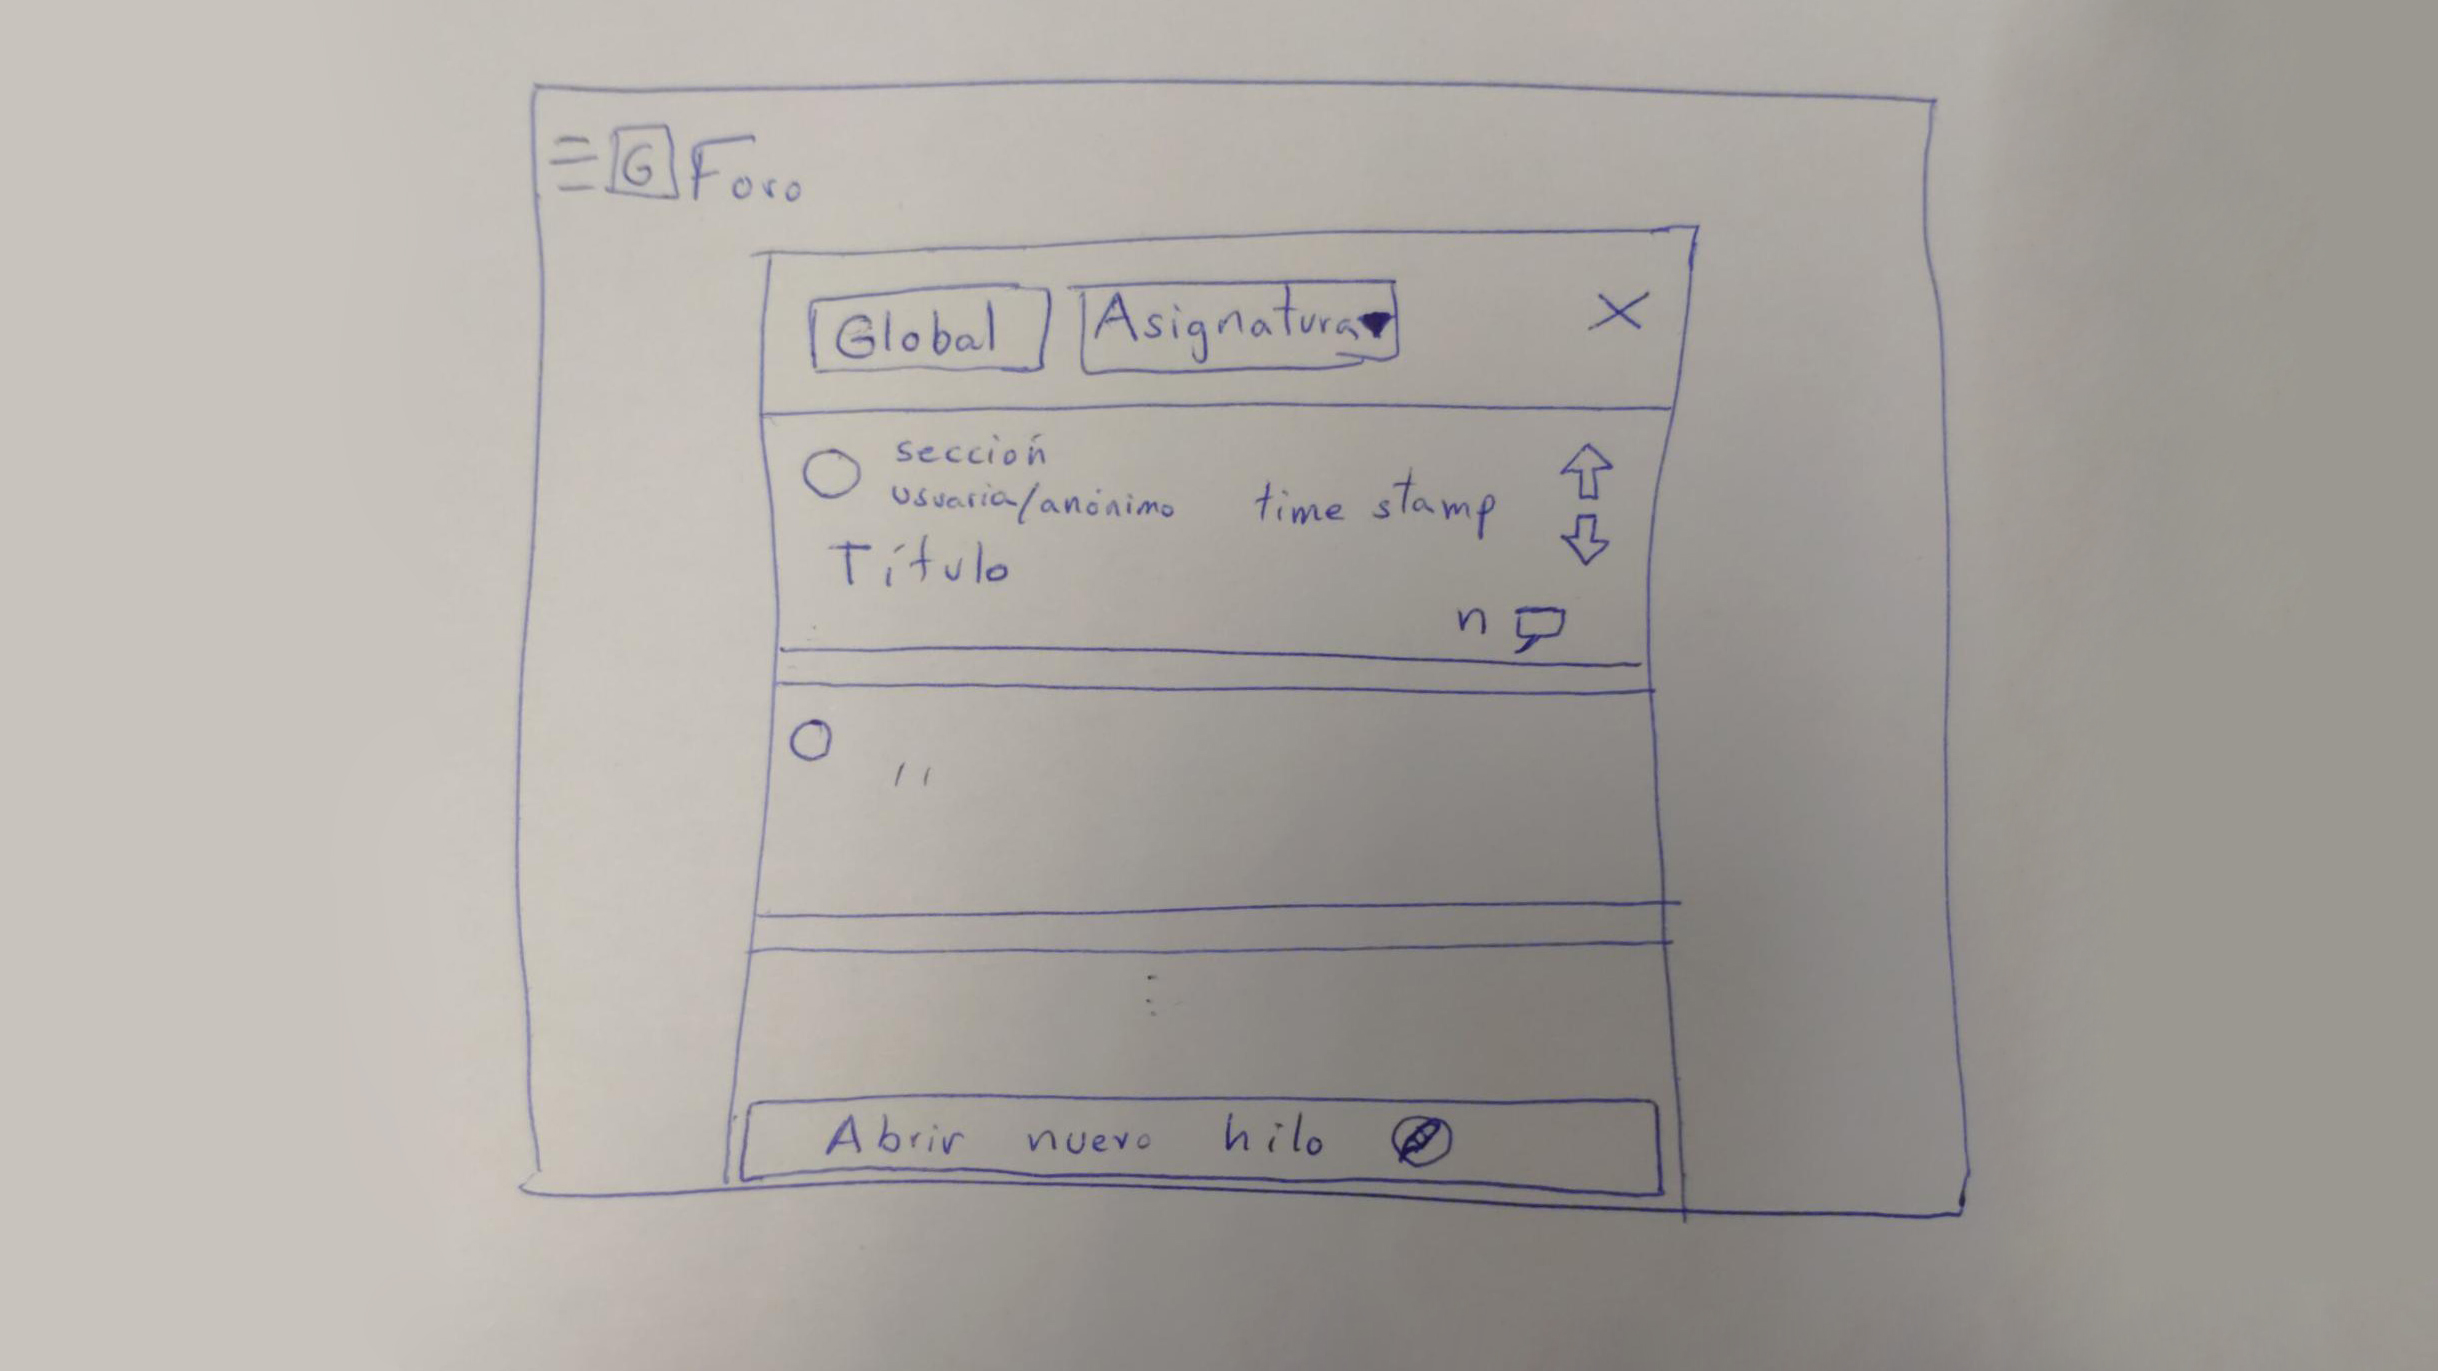 G Foro
Global Asignatura
sección
usuaria/anónimo time stamp
Título
n
Abrir nuevo hilo